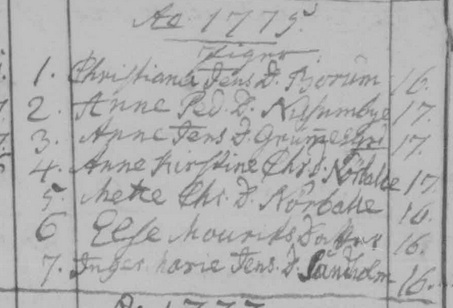 Ao 1775.
Piger
1. Christiana Jens D. Borum 16.
2. Anne Ped. D. Nissumbye 17.
3. Anne Jens D. 17.
4. Anne Kirstine Chr. D. Nörballe 17.
5. Mette Chr. D. Nörballe 16.
6 Else Mourits Datter 16.
7. Inger Marie Jens. D. Sandholm 16.